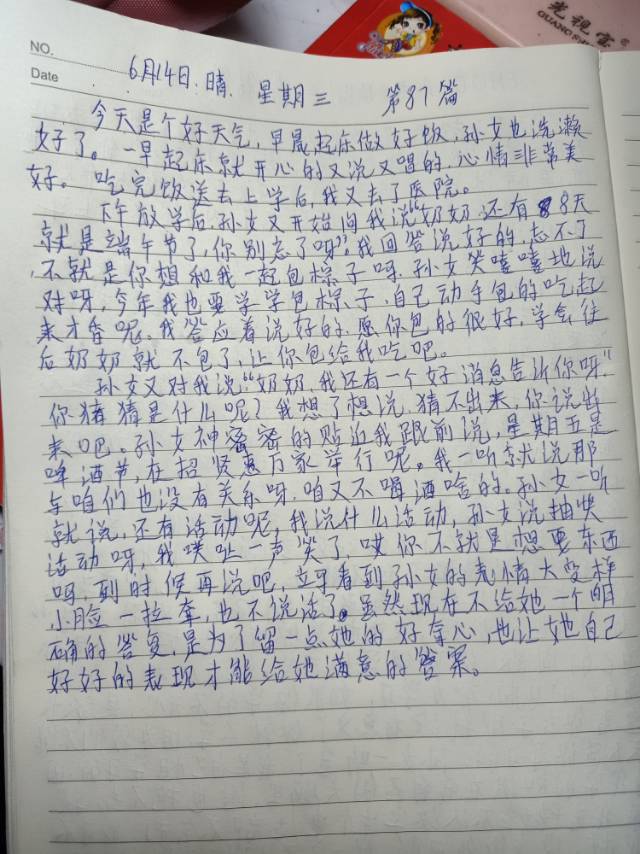 光视宝
GUANG
NO.
Date
6月14日.晴. 星期三 第87篇
今天是个好天气,早晨起床做好饭,孙女也洗漱
好了。一早起床就开心的又说又唱的,心情非常美
好。吃完饭送去上学后,我又去了医院。
下午放学后,孙女又开始问我说“奶奶,还有8天
就是端午节了,你别忘了呀”。我回答说好的,忘不了
,不就是你想和我一起包棕子呀,孙女笑嘻嘻地说
对呀,今年我也要学学包棕子,自己动手包的吃起
来才香呢,我答应着说好的,愿你包的很好,学会往
后奶奶就不包了,让你包给我吃吧。
孙女又对我说“奶奶,我还有一个好消息告诉你呀”.
你猜猜是什么呢?我想了想说,猜不出来,你说出
来吧。孙女神密密的贴近我跟前说,星期五是
啤酒节,在招贤惠万家举行呢。我一听就说那
与咱们也没有关系呀,咱又不喝酒啥的。孙女一听
就说,还有活动呢,我说什么活动,孙女说抽奖
活动呀,我噗吡一声笑了,哎你不就是想要东西
吗,到时侯再说吧,立马看到孙女的表情大变样
小脸一拉拿,也不说话了。虽然现在不给她一个明
确的答复,是为了留一点她的好奇心,也让她自己
好好的表现才能给她满意的答案。